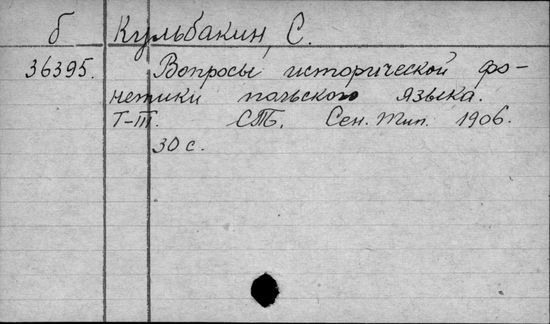 б Кульбакин, С.
36395. Вопросы исторической фо-
нетики польского языка.
I-III. СПб. Сен. тип. 1906.
30 с.